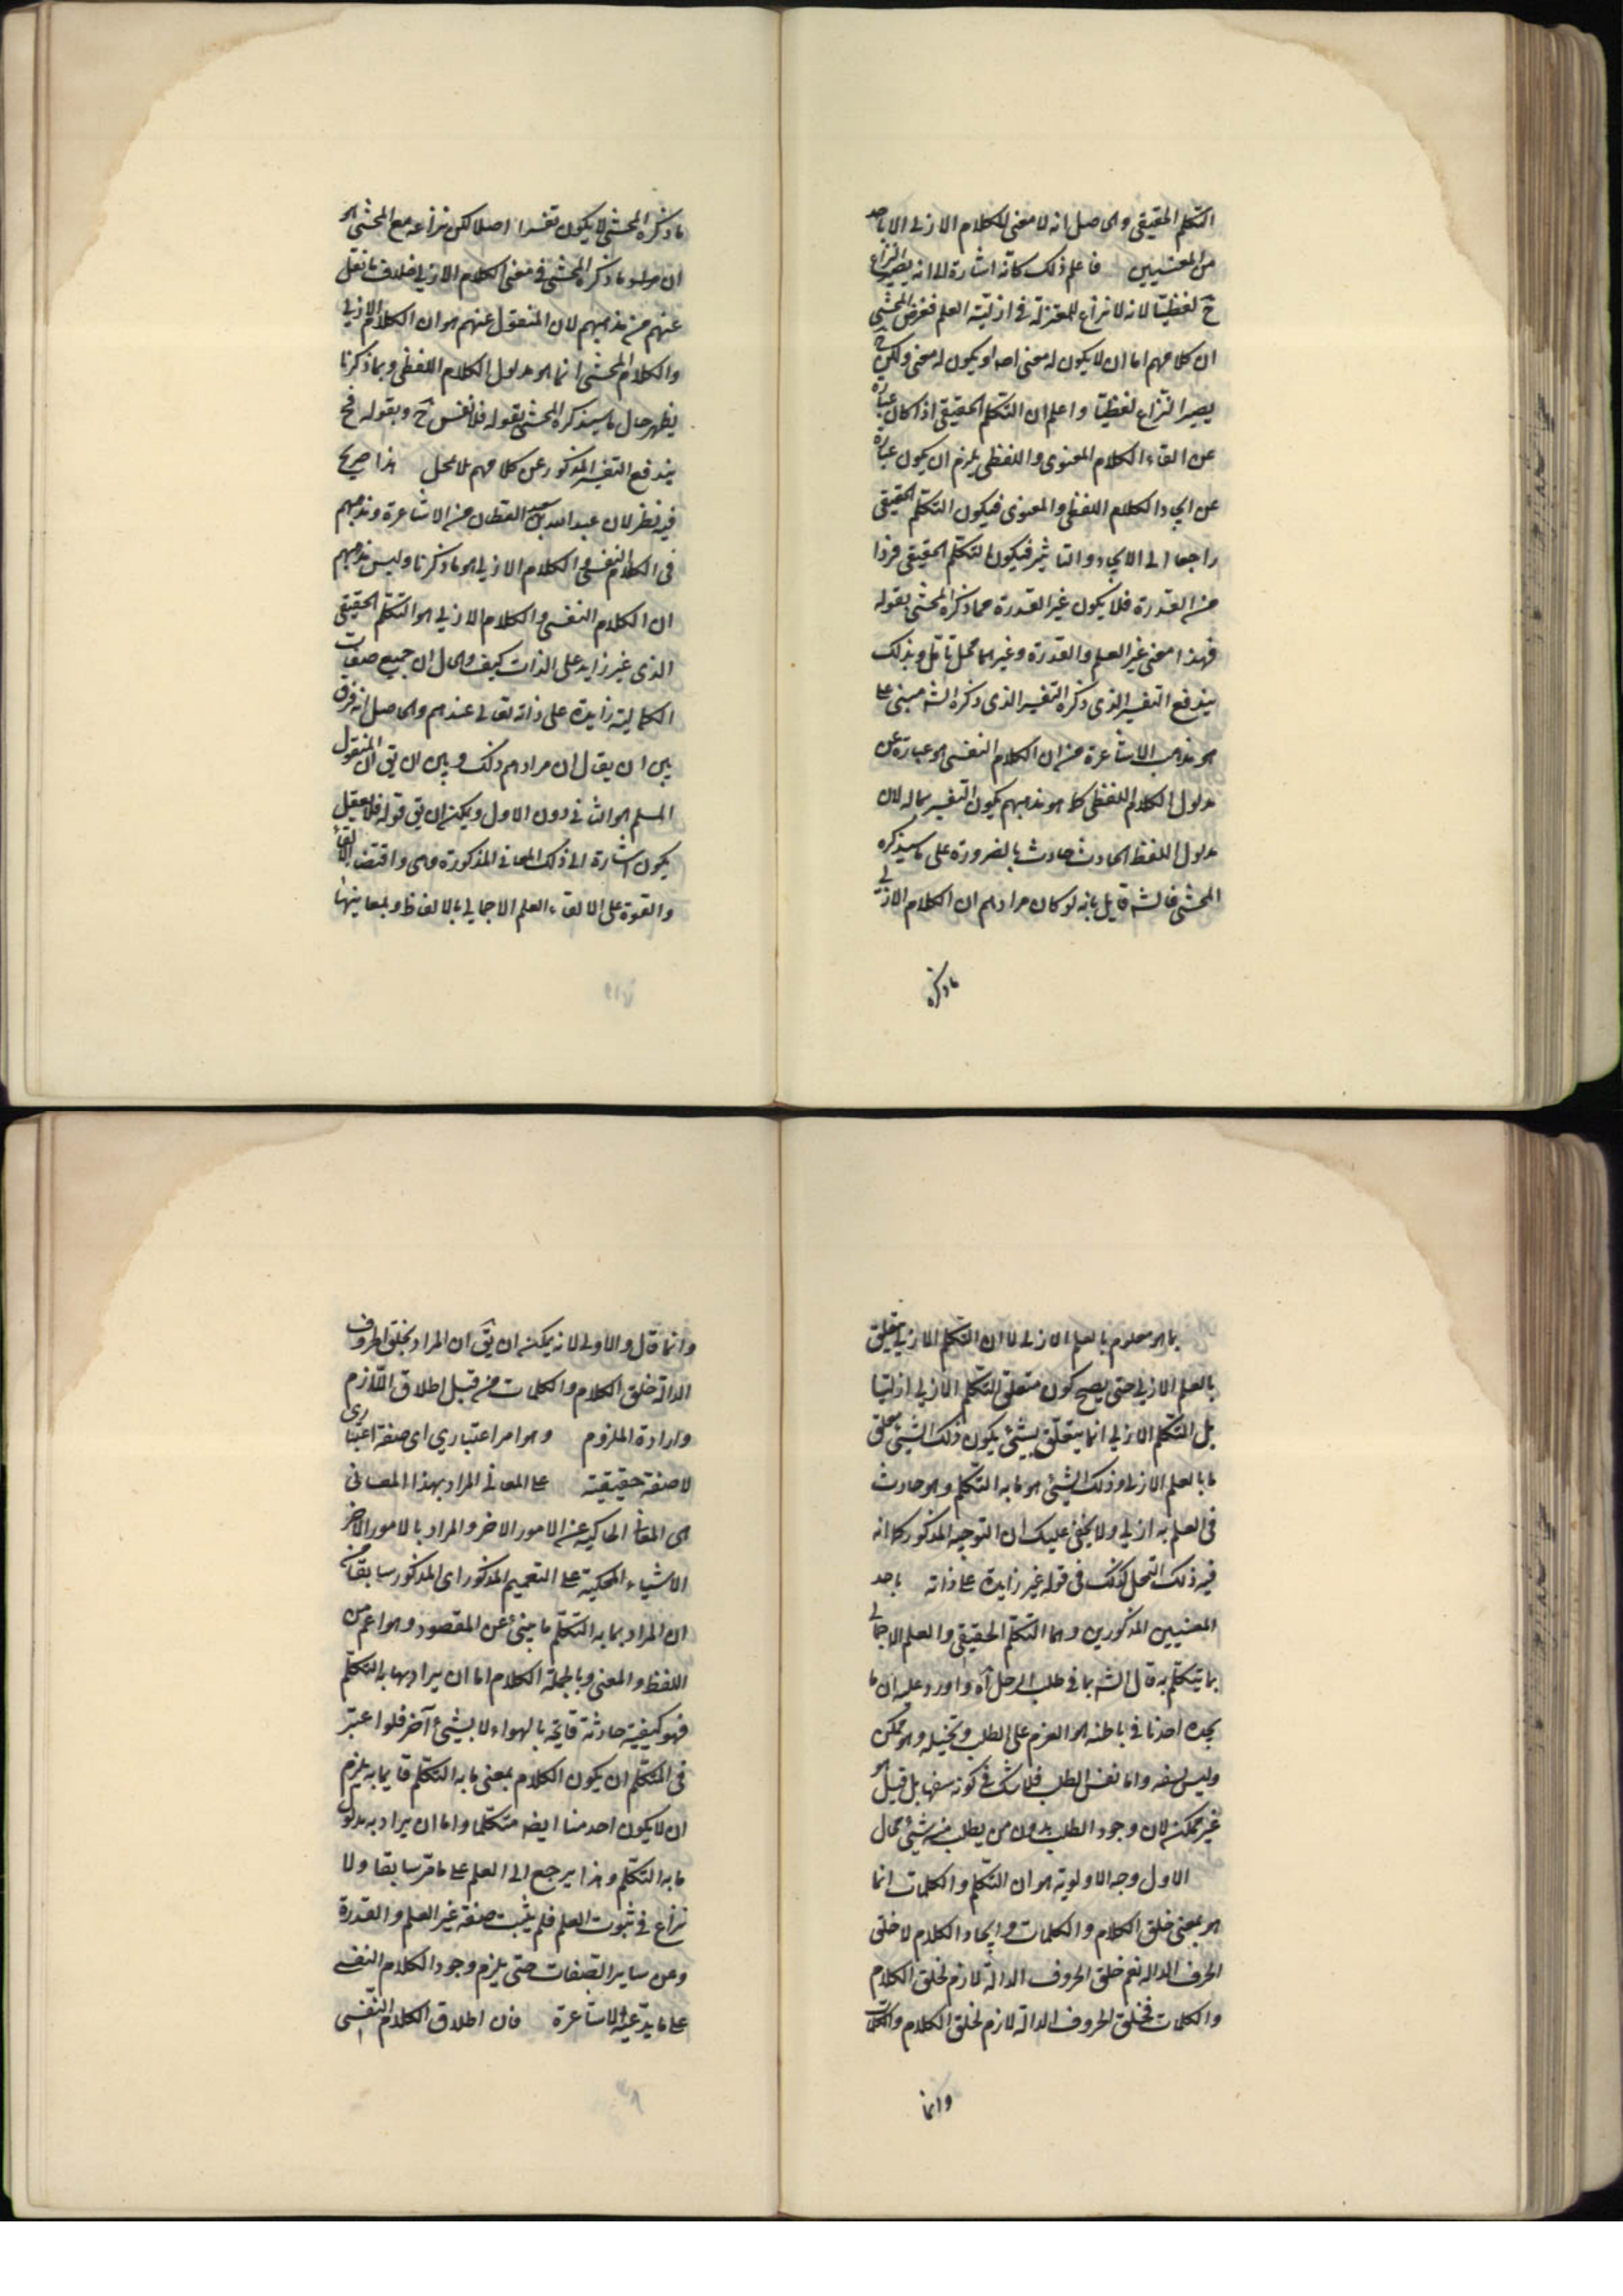 التكلم الحقيقى والحاصل انه لا معنى للكلام الازلى الا باحد
من المعنيين فاعلم ذلك كانّه اشارة الى انه يصير النزاع
ح لفظيّا لانه لا نزاع للمعتزلة فى ازليّة العلم فغرض المحشى
ان كلامهم اما ان لا يكون له معنى اصلا او يكون له معنى ولكن ح
يصير النزاع لفظيّا واعلم ان التكلّم الحقيقى اذا كان عبارة
عن القاء الكلام المعنوى واللفظى يلزم ان يكون عبارة
عن ايجاد الكلام اللفظى والمعنوى فيكون التكلّم الحقيقى
راجعا الى الايجاد والتاثير فيكون التكلّم الحقيقى فردا
من القدرة فلا يكون غير القدرة فما ذكره المحشى بقوله
فهذا معنى غير العلم والقدرة وغيرهما محل تامّل وبذلك
يندفع التفسير الذى ذكره التفسير الذى ذكره الشه مبنى على
هو مذهب الاشاعرة من ان الكلام النفسى هو عبارة عن
مدلول الكلام اللفظى كما هو مذهبهم يكون التفسير بماله لان
مدلول اللفظ الحادث حادث بالضرورة على ما سيذكره
المحشى فالشه قايل بانه لو كان مرادهم ان الكلام الازلى
ما ذكره
ما ذكره المحشى لا يكون تفسيرا اصلا لكن نزاعه مع المحشى هو
ان مراد ما ذكره المحشى فى معنى الكلام الازلى خلاف ما نقل
عنهم من مذهبهم لان المنقول عنهم هو ان الكلام الازلى
والكلام المحشى انما هو مدلول الكلام اللفظى وبما ذكرنا
يظهر حال ما سيذكره المحشى بقوله فلا نفس ح وبقوله فح
يندفع التفسير المذكور عن كلامهم بلا محل هذا صريح
فيه نظر لان عبد الله بن سعيد القطان من الاشاعرة ومذهبهم
فى الكلام النفسى والكلام الازلى هو ما ذكرنا وليس مذهبهم
ان الكلام النفسى والكلام الازلى هو التكلّم الحقيقى
الذى غير زايد على الذات كيف والحال ان جميع صفات
الكمالية زايدة على ذاته تعالى عندهم والحاصل انه فرق
بين ان يقال ان مرادهم ذلك وبين ان يق ان المنقول
المسلم هو الثانى دون الاول ويمكن ان يق قوله فلا يعقل
يكون اشارة الى ذلك المعانى المذكورة وهى واقتضاء الالقاء
والقوة على الالقاء العلم الاجمالى بالالفاظ وبمعانيها
بما هو معلوم بالعلم الازلى لا ان التكلم الازلى يتعلق
بالعلم الازلى حتى يصح كون متعلق التكلم الازلى ازليّا
بل التكلّم الازلى انما يتعلّق بشئ يكون ذلك الشئ متعلق
ما بالعلم الازلى وذلك الشئ هو ما به التكلّم وهو حادث
فى العلم به ازلى ولا يخفى عليك ان التوجيه المذكور كما انه
فيه ذلك التمحل كذلك فى قوله غير زايدة على ذاته باحد
المعنيين المذكورين وهما التكلّم الحقيقى والعلم الاجمالى
بما يتكلّم به قال الشه بما فى طلب الرجل آه واورد عليه ان ما
يجده احدنا فى باطنه هو العزم على الطلب وتخيله وهو ممكن
وليس بسفه واما نفس الطلب فلا شك فى كونه سفها بل قيل هو
غير ممكن لان وجود الطلب بدون من يطلب منه شئ محال
الاول وجه الاولوية هو ان التكلّم والكلمات انما
هو بمعنى خلق الكلام والكلمات وايجاد الكلام لا خلق
الحرف الدالة نعم خلق الحروف الدالّة لازم لخلق الكلام
والكلمات فخلق الحروف الدالّة لازم لخلق الكلام والكلمات
وانما
وانما قال والاولى لانه يمكن ان يق ان المراد بخلق الحروف
الدالة خلق الكلام والكلمات من قبل اطلاق اللّازم
وارادة الملزوم وهو امر اعتبارى اى صفة اعتبارى
لا صفة حقيقية على المعانى المراد بهذا المعانى
هى المعانى الحاكية عن الامور الاخر والمراد بالامور الاخر
الاشياء المحكية على التعميم المذكور اى المذكور سابقا من
ان المراد بما به التكلّم ما ينبئ عن المقصود وهو اعم من
اللفظ والمعنى وبالجملة الكلام اما ان يراد بها به التكلّم
فهو كيفية حادثة قايمة بالهواء لا بشئ آخر فلو اعتبر
فى المتكلّم ان يكون الكلام بمعنى ما به التكلّم قايما به يلزم
ان لا يكون احد منا ايضه متكلّما واما ان يراد به مدلول
ما به التكلّم وهذا يرجع الى العلم على ما مرّ سابقا ولا
نزاع فى ثبوت العلم فلم يثبت صفة غير العلم والقدرة
وعن ساير الصفات حتى يلزم وجود الكلام النفسى
على ما يدّعيه الاشاعرة فان اطلاق الكلام النّفسى